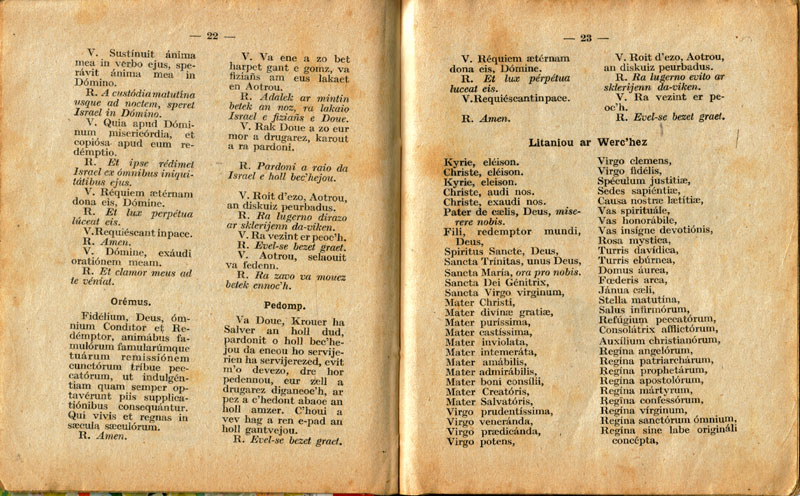 — 22 —
V. Sustínuit ánima
mea in verbo ejus, spe-
rávit ánima mea in
Dómino.
R. A custódia matutina
usque ad noctem, speret
Israel in Dómino.
V. Quia apud Dómi-
num misericórdia, et
copiósa apud eum re-
démptio.
R. Et ipse rédimet
Israel ex ómnibus iniqui-
tátibus ejus.
V. Réquiem ætérnam
dona eis, Dómine.
R. Et lux perpétua
lúceat eis.
V. Requiéscant in pace.
R. Amen.
V. Dómine, exáudi
oratiónem meam.
R. Et clamor meus ad
te véniat.
Orémus.
Fidélium, Deus, óm-
nium Cónditor et Re-
démptor, animábus fa-
mulórum famularúmque
tuárum remissiónem
cunctórum tríbue pec-
catórum, ut indulgén-
tiam quam semper op-
tavérunt piis supplica-
tiónibus consequántur.
Qui vivis et regnas in
sǽcula sæculórum.
R. Amen.
V. Va ene a zo bet
harpet gant e gomz, va
fiziañs am eus lakaet
en Aotrou.
R. Adalek ar mintin
betek an noz, ra lakaio
Israel e fiziañs e Doue.
V. Rak Doue a zo eur
mor a drugarez, karout
a ra pardoni.
R. Pardoni a raio da
Israel e holl bec'hejou.
V. Roit d'ezo, Aotrou,
an diskuiz peurbadus.
R. Ra lugerno dirazo
ar sklerijenn da-viken.
V. Ra vezint er peoc'h.
R. Evel-se bezet graet.
V. Aotrou, selaouit
va fedenn.
R. Ra zavo va mouez
betek ennoc'h.
Pedomp.
Va Doue, Krouer ha
Salver an holl dud,
pardonit o holl bec'he-
jou da eneou ho servije-
rien ha servijerezed, evit
m'o devezo, dre hor
pedennou, eur zell a
drugarez diganeoc'h, ar
pez a c'hedont abaoe an
holl amzer. C'houi a
vev hag a ren e-pad an
holl gantvejou.
R. Evel-se bezet graet.
— 23 —
V. Réquiem ætérnam
dona eis, Dómine.
R. Et lux pérpétua
lúceat eis.
V. Requiéscant in pace.
R. Amen.
V. Roit d'ezo, Aotrou,
an diskuiz peurbadus.
R. Ra lugerno evito ar
sklerijenn da-viken.
V. Ra vezint er pe-
oc'h.
R. Evel-se bezet graet.
Litaniou ar Werc'hez
Kyrie, eléison.
Christe, eléison.
Kyrie, eleison.
Christe, audi nos.
Christe, exaudi nos.
Pater de cælis, Deus, mise-
rere nobis.
Fili, redemptor mundi,
Deus,
Spiritus Sancte, Deus,
Sancta Trínitas, unus Deus,
Sancta Maria, ora pro nobis.
Sancta Dei Génitrix,
Sancta Virgo vírginum,
Mater Christi,
Mater divínæ gratiæ,
Mater puríssima,
Mater castíssima,
Mater invioláta,
Mater intemeráta,
Mater amábilis,
Mater admirábilis,
Mater boni consílii,
Mater Creatóris,
Mater Salvatóris,
Virgo prudentíssima,
Virgo veneránda,
Virgo prædicánda,
Virgo potens,
Virgo clemens,
Virgo fidélis,
Spéculum justitiæ,
Sedes sapiéntiæ,
Causa nostræ lætítiæ,
Vas spirituále,
Vas honorábile,
Vas insígne devotiónis,
Rosa mystica,
Turris davídica,
Turris ebúrnea,
Domus áurea,
Fœderis arca,
Jánua cæli,
Stella matutína,
Salus infirmórum,
Refúgium peccatórum,
Consolátrix afflictórum,
Auxílium christianórum,
Regína angelórum,
Regína patriarchárum,
Regína prophetárum,
Regína apostolórum,
Regína mártyrum,
Regína confessórum,
Regína vírginum,
Regína sanctórum ómnium,
Regína sine labe origináli
concépta,